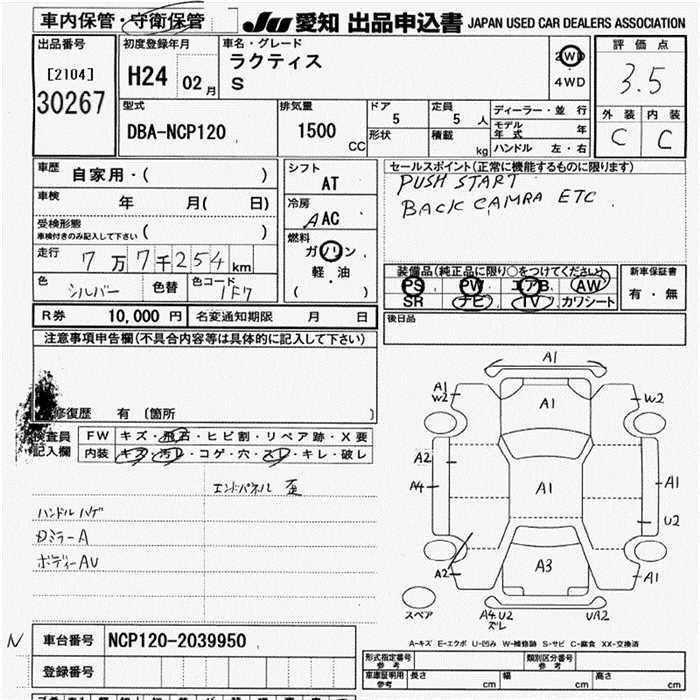 車内保管・守衛保管 JU 愛知 出品申込書 JAPAN USED CAR DEALERS ASSOCIATION
出品番号 初度登録年月 車名・グレード 評価点
[2104] H24 02月 ラクティス 2WD 3.5
30267 S 4WD
外装 内装
型式 排気量 ドア 定員 ディーラー・並行
DBA-NCP120 1500 CC 5 5人 モデル年式 年 C C
形状 積載 kg ハンドル 左・右
車歴 自家用・( ) シフト セールスポイント(正常に機能するものに限ります)
AT PUSH START
車検 年 月( 日) 冷房 BACK CAMRA ETC
AAC
受検形態
車検付きのみ記入して下さい ( ) 燃料
走行 7万7千254km ガソリン 装備品(純正品に限り○をつけてください) 新車保証書
色 シルバー 色替 色コード 1F7 軽・油 PS PW エアB AW 有・無
( ) SR ナビ TV カワシート
R券 10,000円 名変通知期限 月 日 後日品
注意事項申告欄(不具合内容等は具体的に記入して下さい)
修復歴 有 〔箇所 〕
検査員 FW キズ・飛石・ヒビ割・リペア跡・X要
記入欄 内装 キズ・汚レ・コゲ・穴・スレ・キレ・破レ
エンドパネル 歪
ハンドル ハゲ
ロミラーA
ボディーAU
A1
A1
W2
W2
A1
A2
A4
A1
A1
U2
A2
A3
A1
スペア
A4.U2
ズレ
UA2
A-キズ E-エクボ U-凹み W-補修跡 S-サビ C-腐食 XX-交換済
N 車台番号 NCP120-2039950
登録番号
形式指定番号 参考 類別区分番号 参考
車庫証明用 参考 長さ cm 幅 cm 高さ cm